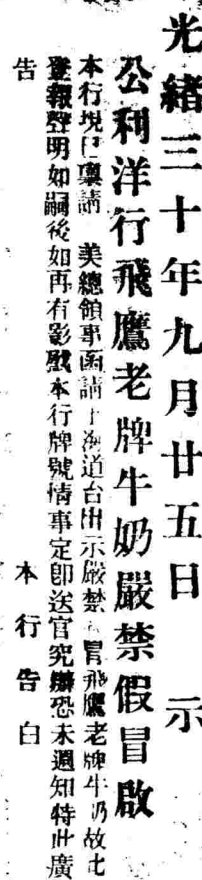 光緒三十年九月廿五日 示
公利洋行飛鷹老牌牛奶嚴禁假冒啟
本行現已稟請 美總領事函請上海道台出示嚴禁 冒飛鷹老牌牛奶故此
登報聲明如嗣後如再有影戤本行牌號情事定卽送官究辦恐未週知特此廣
告 本行告白